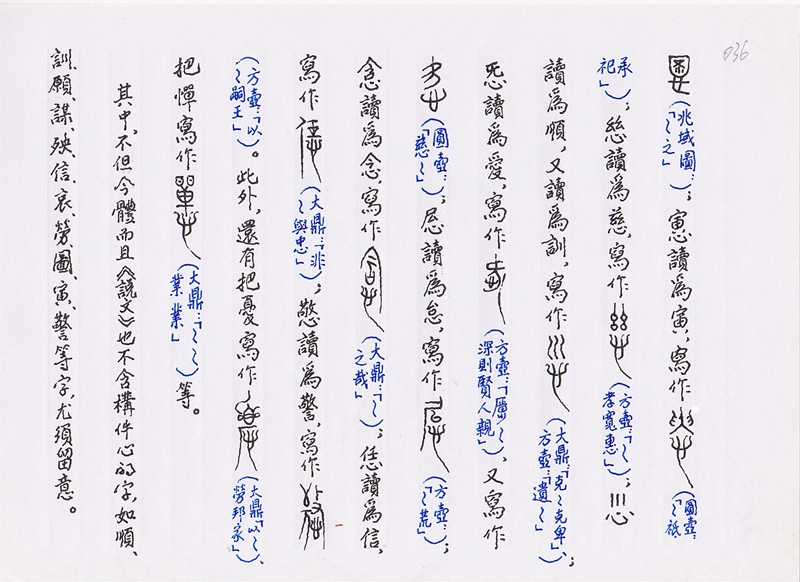 036
(兆域圖:「～之」)；寅讀為寅，寫作(圓壺:「～祗
承祀」)；慈讀為慈，寫作(方壺:「～孝寬惠」)；
讀為順，又讀為訓，寫作(大鼎:「克～克卑」、方壺:「遺～」)；
㤅讀為愛，寫作(方壺:「～深則賢人親」)，又寫作
(圓壺:「慈～」)；𢘽讀為怠，寫作(方壺:「～荒」)；
念讀為念，寫作(大鼎:「～之哉」)；㐰讀為信，
寫作(大鼎:「非～與忠」)；憼讀為警，寫作
(方壺:「以～嗣王」)。此外，還有把憂寫作(大鼎「以～勞邦家」)、
把憚寫作(大鼎:「～～業業」)等。
其中，不但今體而且《說文》也不含構件心的字，如順、
訓、願、謀、殃、信、哀、勞、圖、寅、警等字，尤須留意。